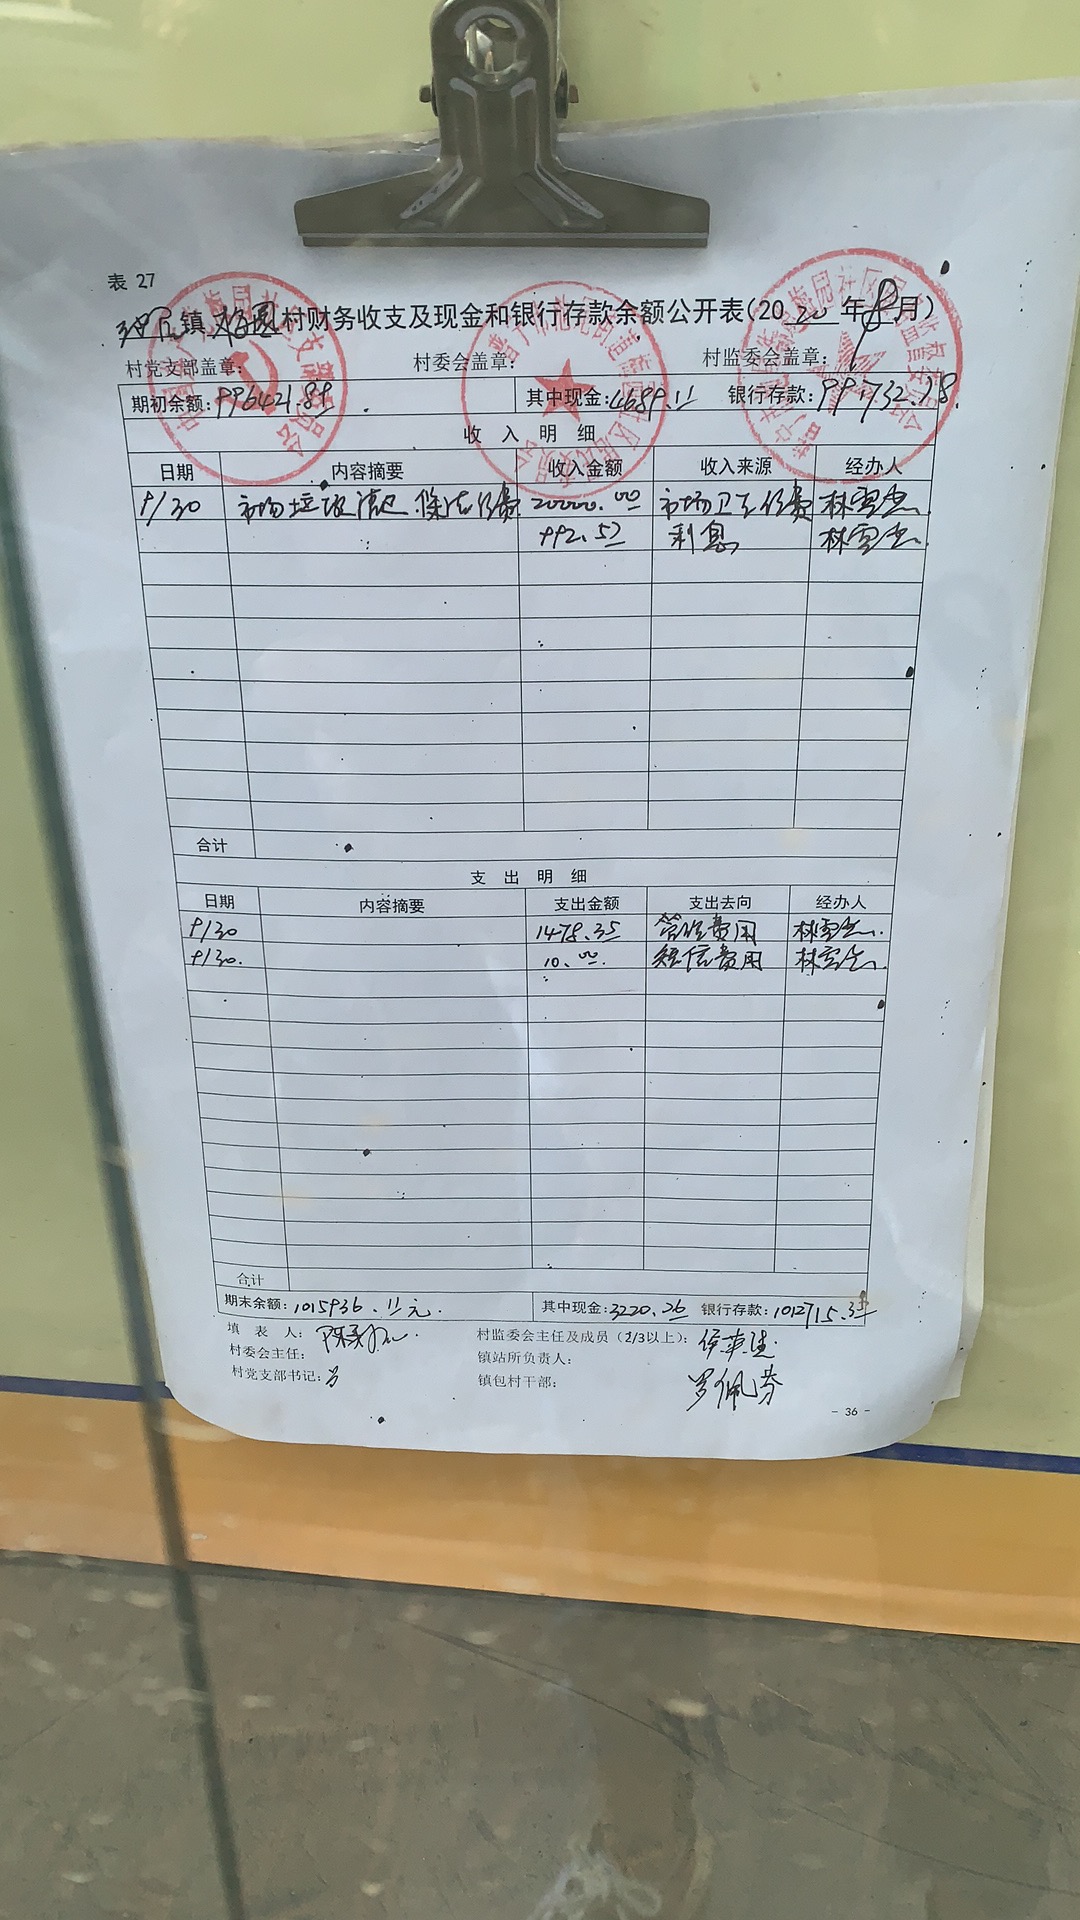 表 27
池尾镇 梅园 村财务收支及现金和银行存款余额公开表(2020年8月)
村党支部盖章: 村委会盖章: 村监委会盖章:
期初余额:996421.89 其中现金:4689.11 银行存款:991732.78
收 入 明 细
日期 内容摘要 收入金额 收入来源 经办人
9/30 市场垃圾清运、保洁经费 20000.00 市场卫生经费 林
992.57 利息 林
合计
支 出 明 细
日期 内容摘要 支出金额 支出去向 经办人
9/30 1478.35 管理费用 林
9/30. 10.00 短信费用 林
合计
期末余额:1015936.11元. 其中现金:3220.26 银行存款:1012715.85
填 表 人: 陈
村委会主任:
村党支部书记:
村监委会主任及成员(2/3以上):
镇站所负责人:
镇包村干部: 罗佩芬
- 36 -